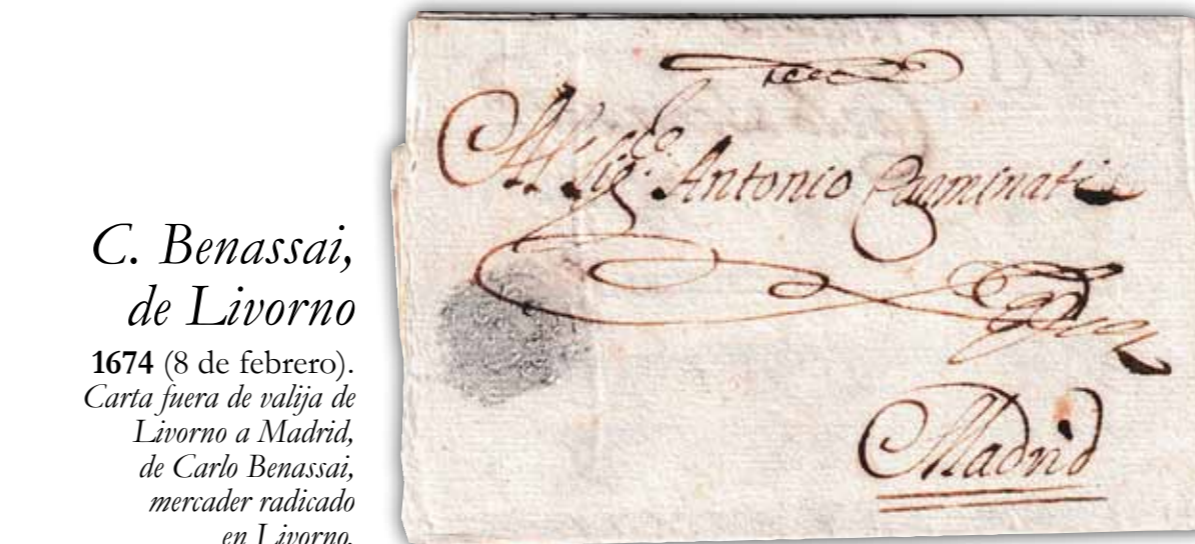 C. Benassai,
de Livorno
1674 (8 de febrero).
Carta fuera de valija de
Livorno a Madrid,
de Carlo Benassai,
mercader radicado
en Livorno.
Al Sig.re Antonio
Madrid